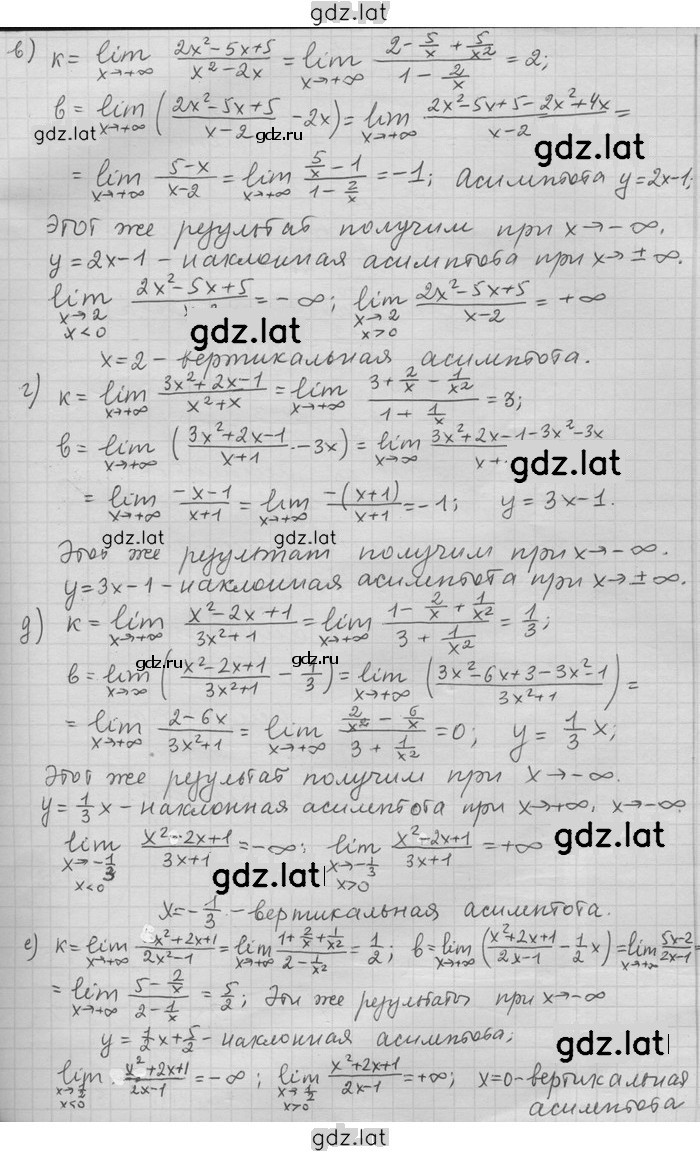 gdz.lat
в) k = lim x→+∞ (2x²-5x+5)/(x²-2x) = lim x→+∞ (2 - 5/x + 5/x²)/(1 - 2/x) = 2;
в = lim x→+∞ ((2x²-5x+5)/(x-2) - 2x) = lim x→+∞ (2x²-5x+5-2x²+4x)/(x-2) =
gdz.lat gdz.ru gdz.lat
= lim x→+∞ (5-x)/(x-2) = lim x→+∞ (5/x - 1)/(1 - 2/x) = -1; асимптота y=2x-1;
Этот же результат получим при x→-∞.
y=2x-1 - наклонная асимптота при x→±∞.
lim x→2 x<0 (2x²-5x+5) = -∞; lim x→2 x>0 (2x²-5x+5)/(x-2) = +∞
gdz.lat
x=2 - вертикальная асимптота.
г) k = lim x→+∞ (3x²+2x-1)/(x²+x) = lim x→+∞ (3 + 2/x - 1/x²)/(1 + 1/x) = 3;
в = lim x→+∞ ((3x²+2x-1)/(x+1) - 3x) = lim x→+∞ (3x²+2x-1-3x²-3x)/(x+
gdz.lat
= lim x→+∞ (-x-1)/(x+1) = lim x→+∞ (-(x+1))/(x+1) = -1; y = 3x-1.
Этот же результат получим при x→-∞.
y=3x-1 - наклонная асимптота при x→±∞.
д) k = lim x→+∞ (x²-2x+1)/(3x²+1) = lim x→+∞ (1 - 2/x + 1/x²)/(3 + 1/x²) = 1/3;
gdz.ru gdz.ru
в = lim x→∞ ((x²-2x+1)/(3x²+1) - 1/3) = lim x→+∞ ((3x²-6x+3-3x²-1)/(3x²+1)) =
= lim x→+∞ (2-6x)/(3x²+1) = lim x→+∞ (2/x² - 6/x)/(3 + 1/x²) = 0; y = 1/3 x;
Этот же результат получим при x→-∞.
y = 1/3 x - наклонная асимптота при x→+∞, x→-∞
lim x→-1/3 x<0 (x²-2x+1)/(3x+1) = -∞; lim x→-1/3 x>0 (x²-2x+1)/(3x+1) = +∞
gdz.lat gdz.lat
x=-1/3 - вертикальная асимптота.
е) k = lim x→+∞ (x²+2x+1)/(2x²-1) = lim x→+∞ (1 + 2/x + 1/x²)/(2 - 1/x²) = 1/2; в = lim x→+∞ ((x²+2x+1)/(2x-1) - 1/2 x) = lim x→+∞ (5x-2)/(2x-1) =
= lim x→+∞ (5 - 2/x)/(2 - 1/x) = 5/2; Эти же результаты при x→-∞
y = 1/2 x + 5/2 - наклонная асимптота;
gdz.lat
lim x→1/2 x<0 (x²+2x+1)/(2x-1) = -∞; lim x→1/2 x>0 (x²+2x+1)/(2x-1) = +∞; x=0 - вертикальная
асимптота
gdz.lat